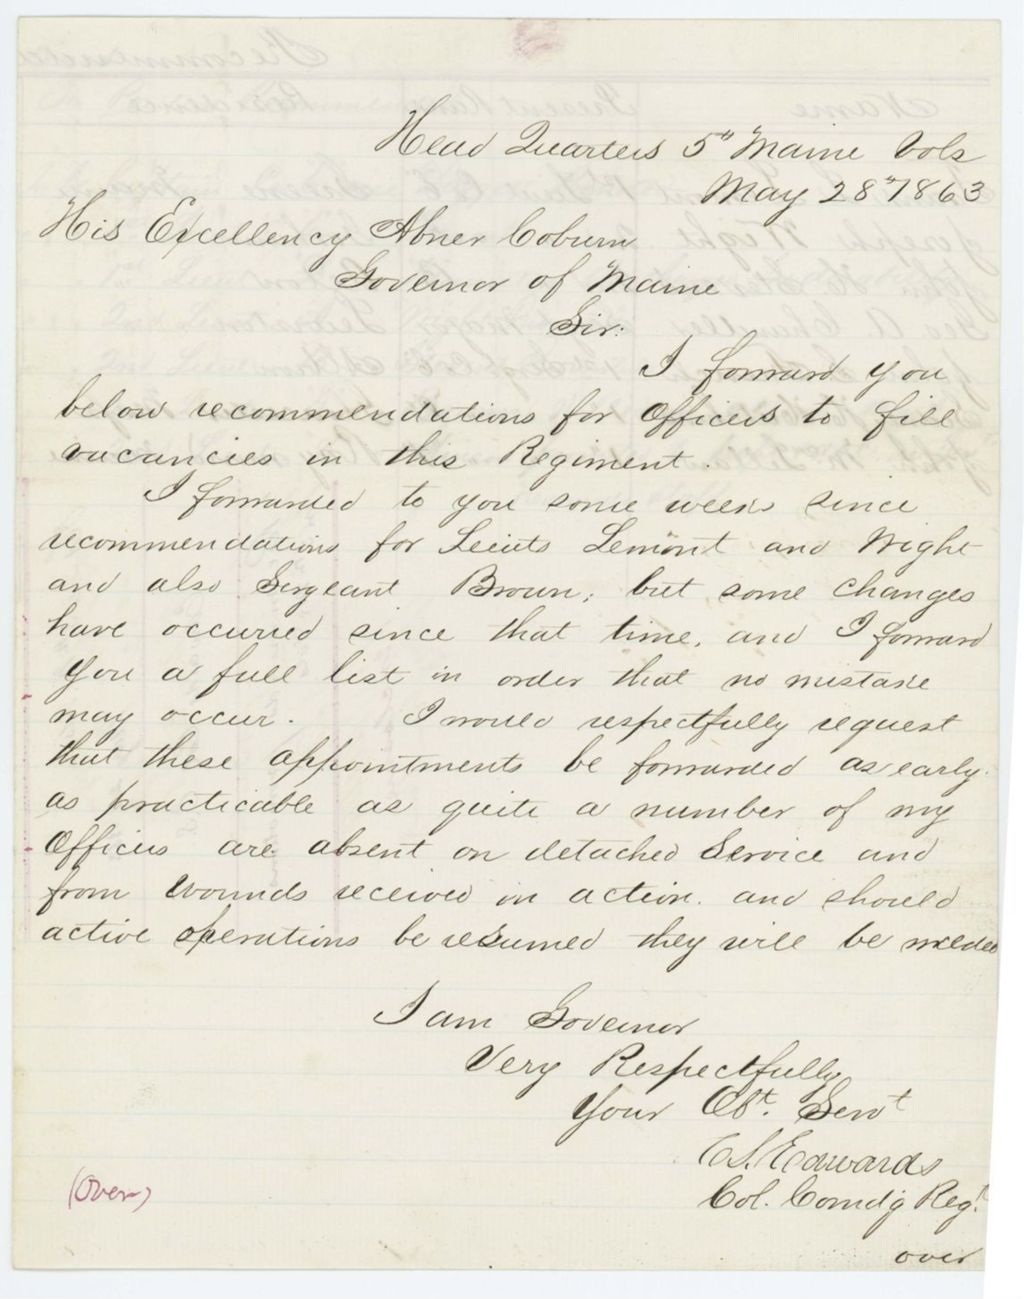 Head Quarters 5th Maine Vols
May 28th 1863
His Excellency Abner Coburn
Governor of Maine
Sir:
I forward you
below recommendations for Officers to fill
vacancies in this Regiment.
I forwarded to you some weeks since
recommendations for Lieuts Lemont and Wight
and also Sergeant Brown; but some changes
have occurred since that time, and I forward
you a full list in order that no mistake
may occur. I would respectfully request
that these appointments be forwarded as early
as practicable as quite a number of my
Officers are absent on detached Service and
from wounds received in action. and should
active operations be resumed they will be needed
I am Governor
Very Respectfully
Your Obt. Servt
C. S. Edwards
Col. Comdg Regt.
(Over)
over